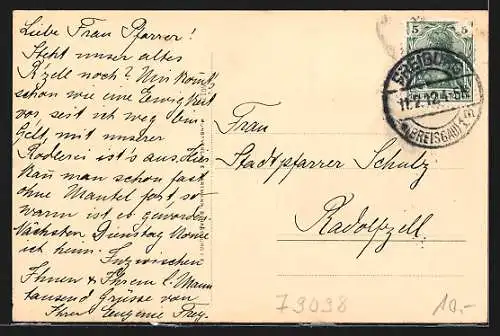 Liebe Frau Pfarrer!
Steht unser altes
R'zell noch? Mir kommt's
schon wie eine Ewigkeit
vor seit ich weg bin.
Gelt, mit unserer
Rodlerei ist's aus. Hier
kann man schon fast
ohne Mantel fort, so
warm ist es geworden.
Nächsten Dienstag komme
ich heim. Inzwischen
Ihnen & Ihrem l. Mann
tausend Grüsse von
Ihrer Eugenie Frey.
5 5
FREIBURG
11.2.12.4-5N
(BREISGAU)
Frau
Stadtpfarrer Schulz
Radolfzell
79098
10.-